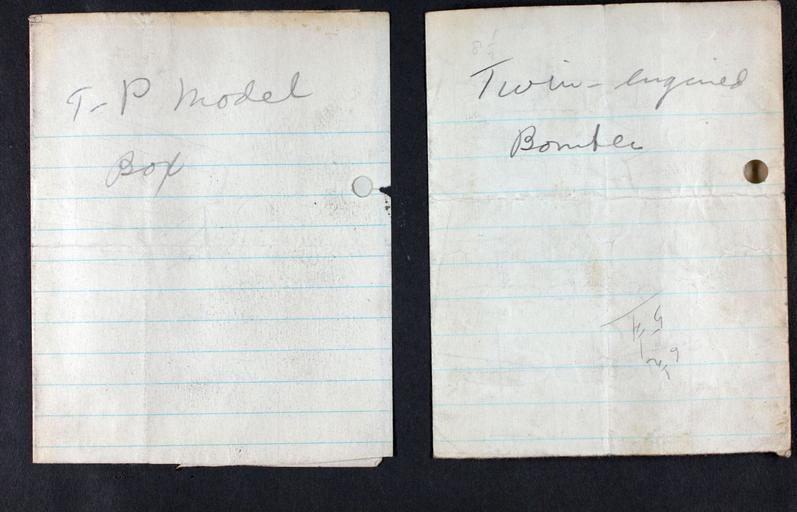 T-P Model
Box
8½
Twin-engined
Bomber